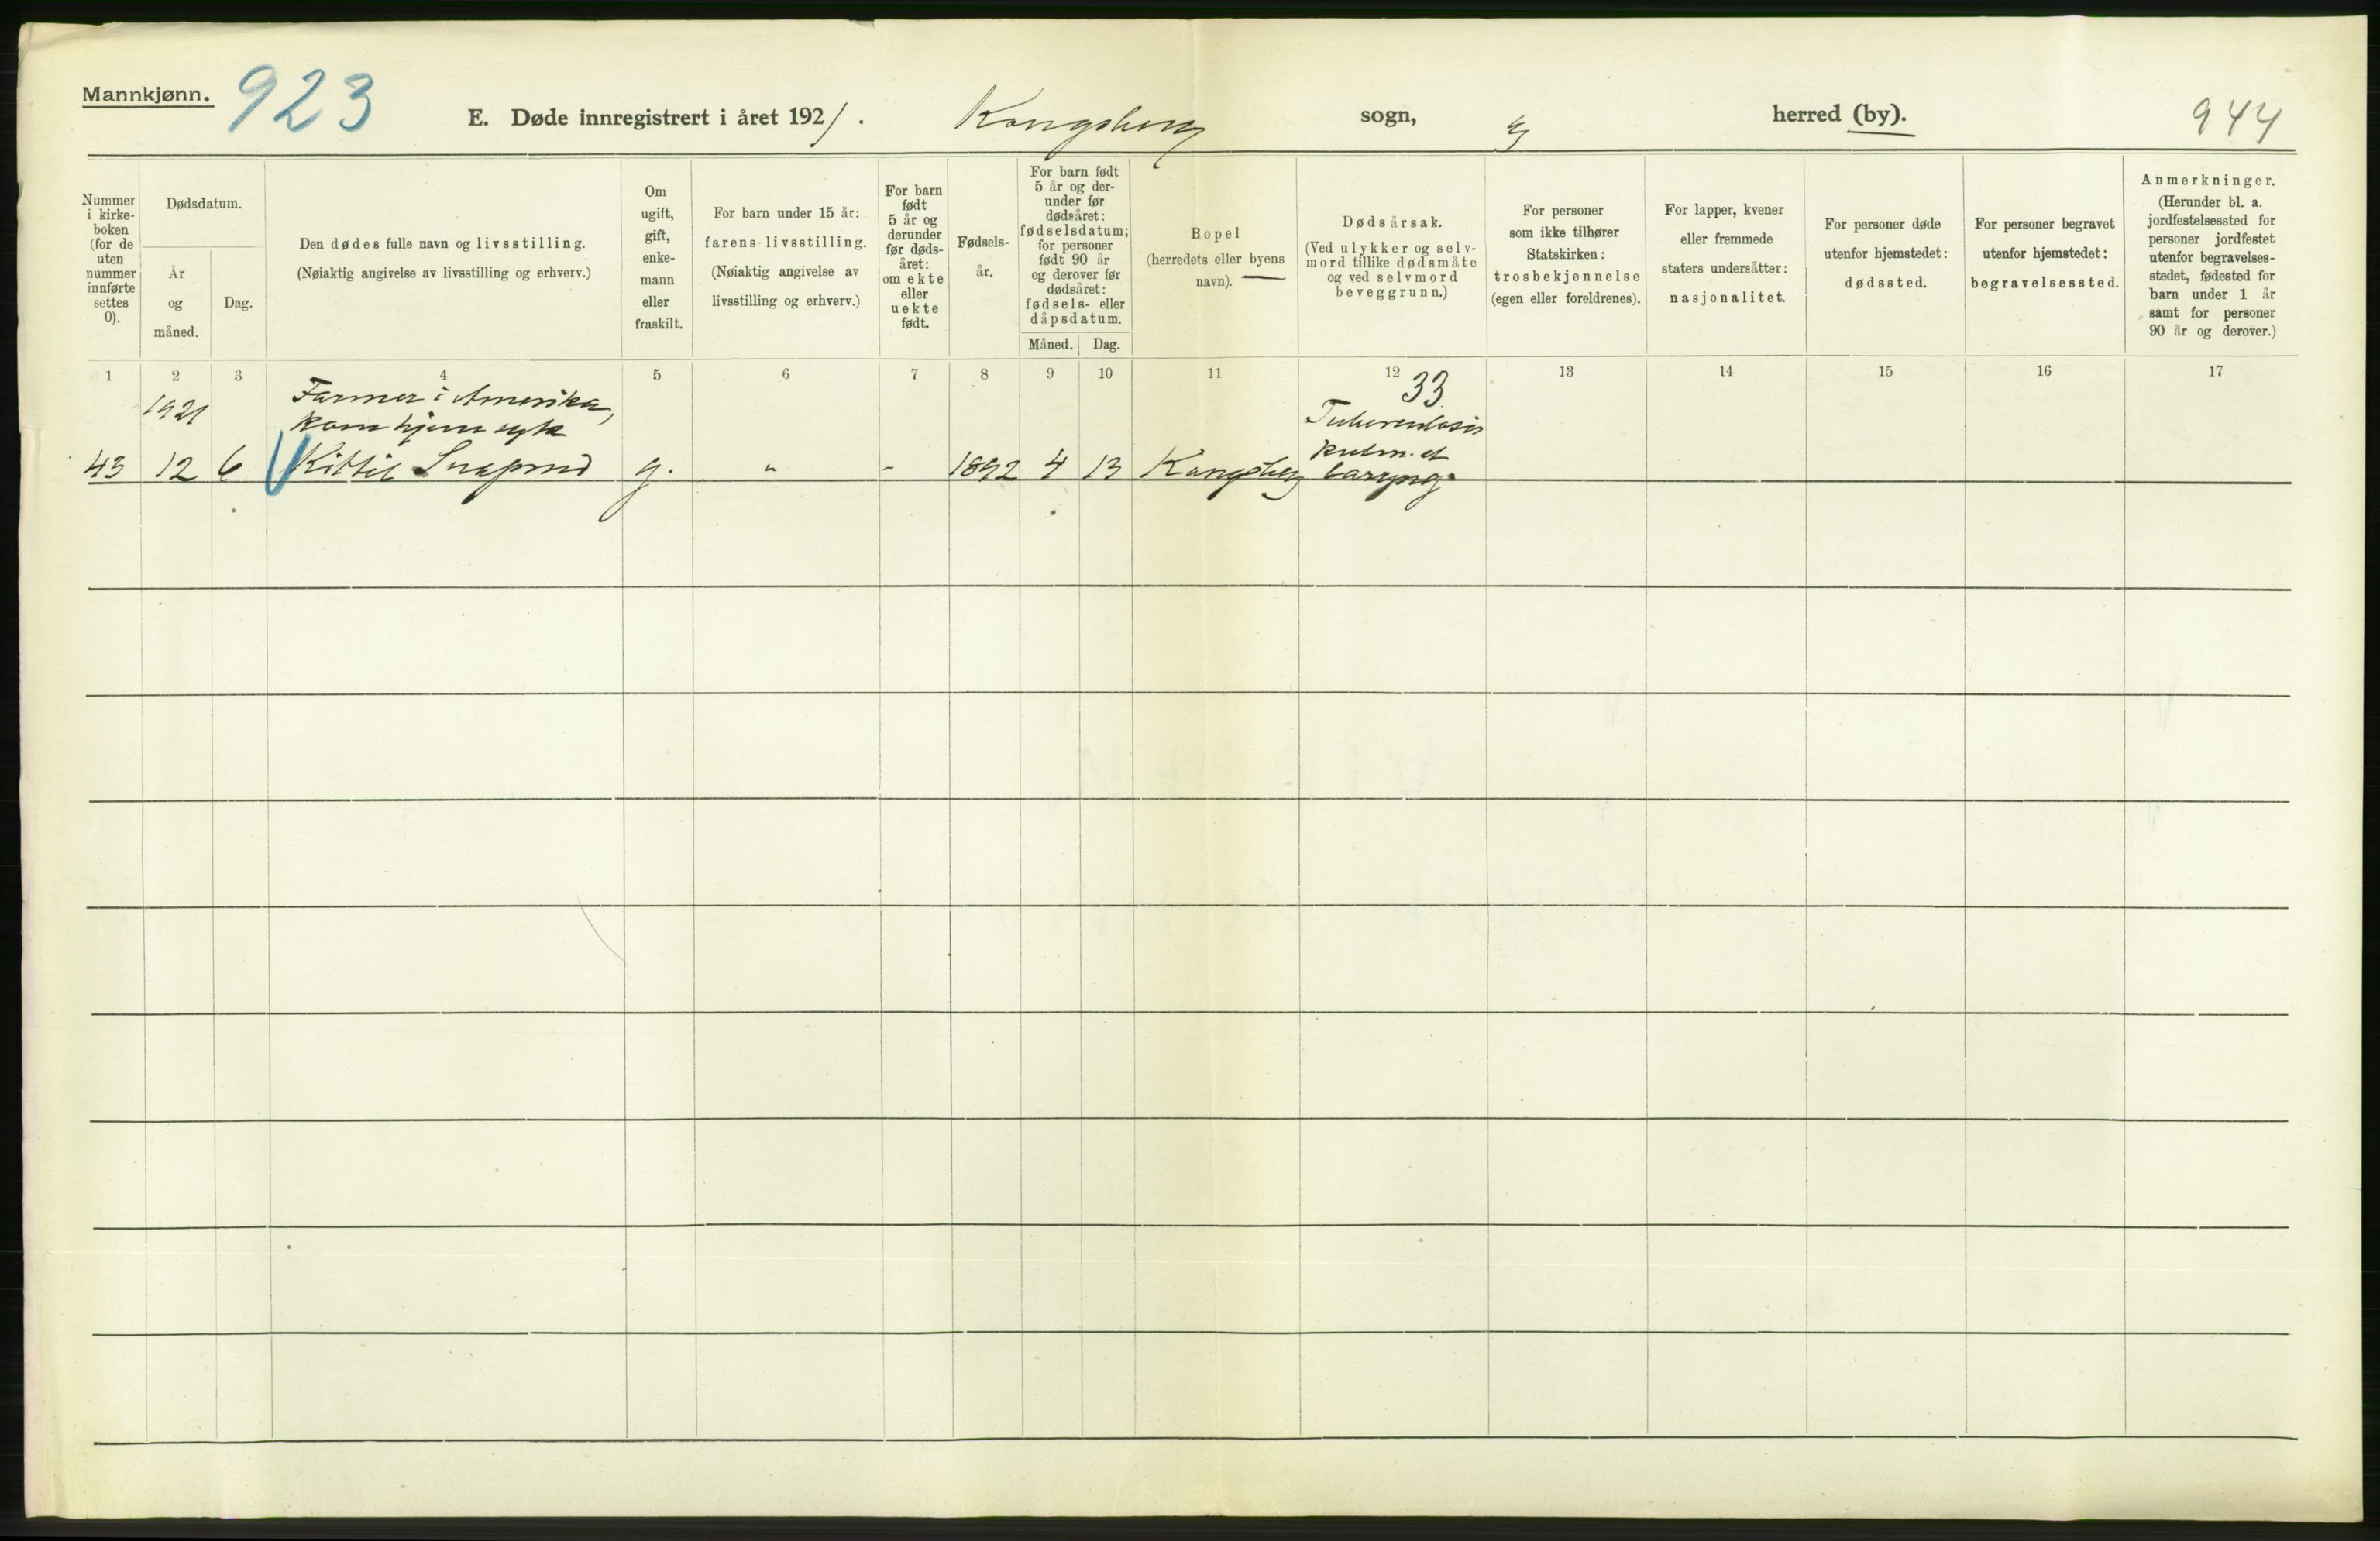 Mannkjønn.
923
E. Døde innregistrert i året 1921.
Kongsberg
sogn,
herred (by).
944
Nummer
i kirke-
boken
(for de
uten
nummer
innførte
settes
0).
Dødsdatum.
År
og
måned.
Dag.
Den dødes fulle navn og livsstilling.
(Nøiaktig angivelse av livsstilling og erhverv.)
Om
ugift,
gift,
enke-
mann
eller
fraskilt.
For barn under 15 år:
farens livsstilling.
(Nøiaktig angivelse av
livsstilling og erhverv.)
For barn
født
5 år og
derunder
før døds-
året:
om ekte
eller
uekte
født.
Fødsels-
år.
For barn født
5 år og der-
under før
dødsåret:
fødselsdatum;
for personer
født 90 år
og derover før
dødsåret:
fødsels- eller
dåpsdatum.
Måned.
Dag.
Bopel
(herredets eller byens
navn).
Dødsårsak.
(Ved ulykker og selv-
mord tillike dødsmåte
og ved selvmord
beveggrunn.)
For personer
som ikke tilhører
Statskirken:
trosbekjennelse
(egen eller foreldrenes).
For lapper, kvener
eller fremmede
staters undersåtter:
nasjonalitet.
For personer døde
utenfor hjemstedet:
dødssted.
For personer begravet
utenfor hjemstedet:
begravelsessted.
Anmerkninger.
(Herunder bl. a.
jordfestelsessted for
personer jordfestet
utenfor begravelses-
stedet, fødested for
barn under 1 år
samt for personer
90 år og derover.)
1 2 3 4 5 6 7 8 9 10 11 12 13 14 15 16 17
33
1921 Farmer i Amerika,
kom hjem syk
Tuberculosis
pulm. et
43 12 6 Kittil g. " - 1892 4 13 Kongsberg laryng.